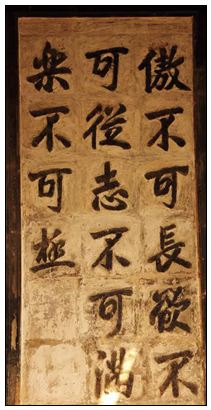 傲不可長欲不
可從志不可滿
樂不可極